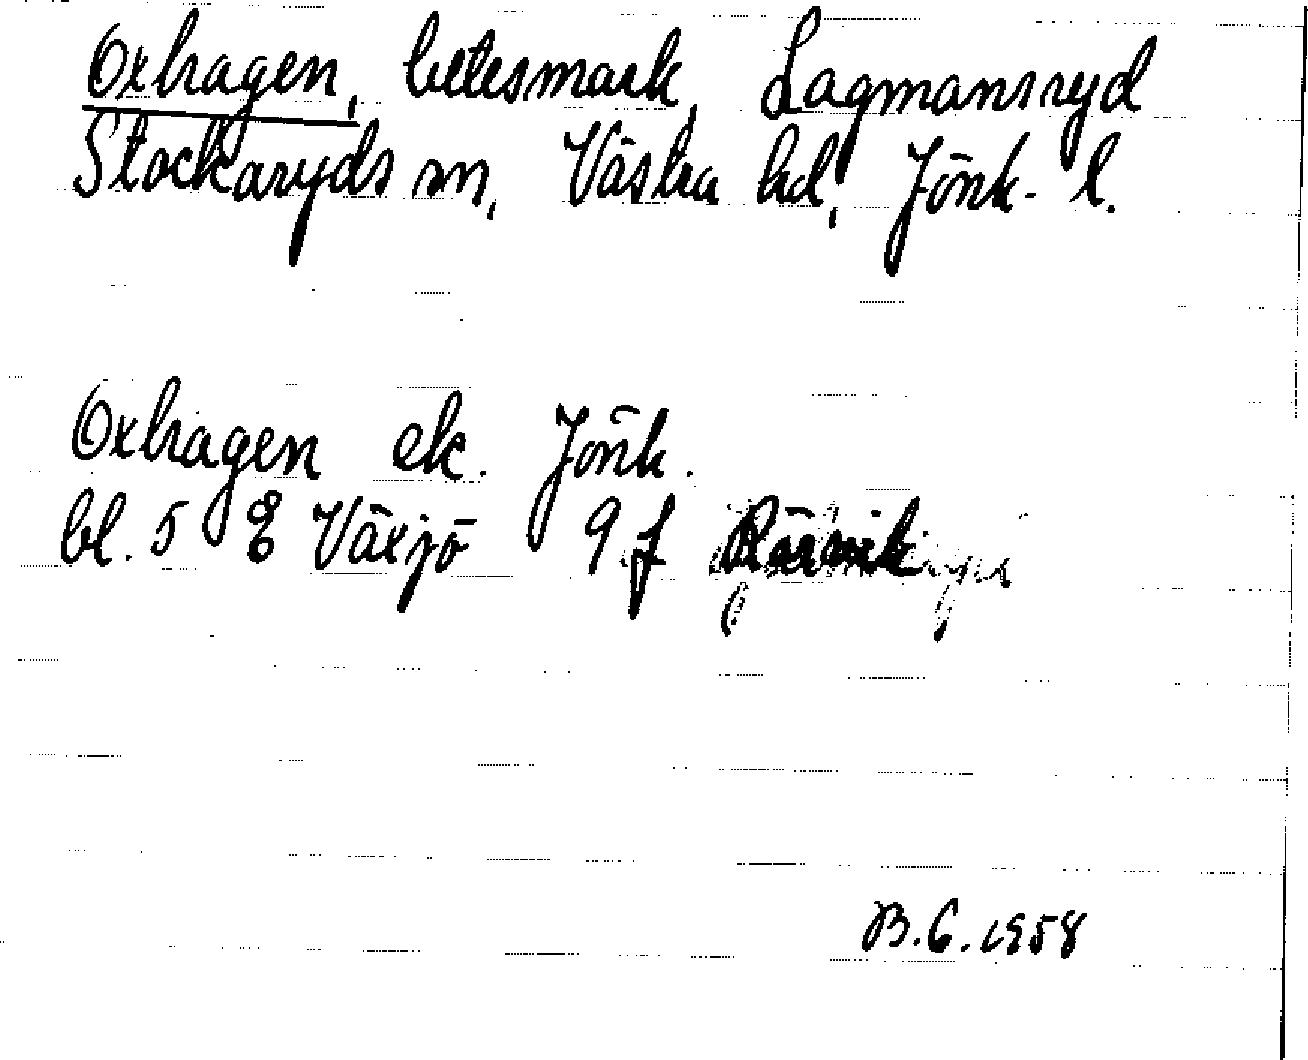 Oxhagen, betesmark, Lagmansryd
Stockaryds sn, Västra hd, Jönk. l.
Oxhagen ek. Jönk.
bl. 5 E Växjö 9 f Rörvik
B.G. 1958